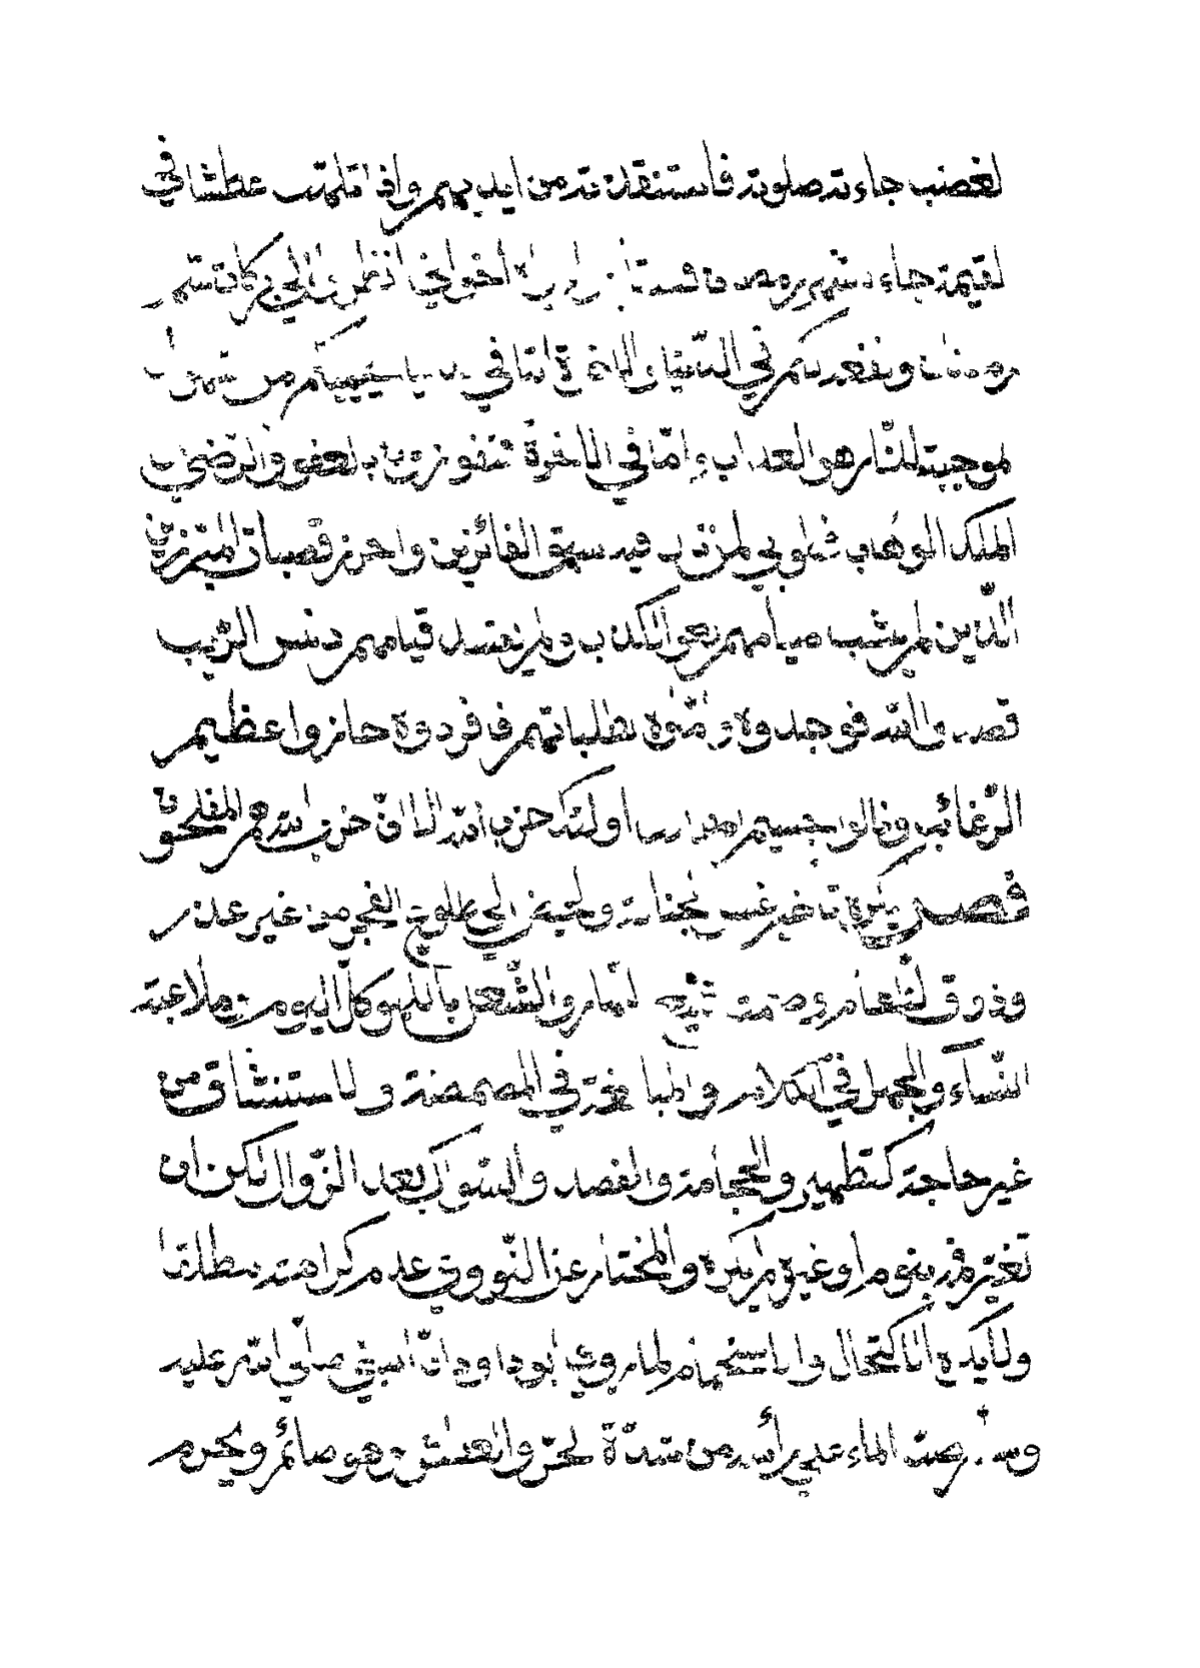 لغضب جاءته صلوته فاستنقذته من ايديهم واذا تلهث عطشا في
لقيمة جاءه شهر رمضان فسقاه اخواني انظروا الى بركات شهر
رمضان ونفعه لكم في الدنيا والاخرة اما في الدنيا من
موجبة للنار هو العذاب واما في الاخرة فتفوزون بالعفو والرضى
الملك الوهاب فطوبى لمن فيه سبق الفائزين واحرز قصبات المبرزين
الذين لم يشب صيامهم لغو الكذب ولم قيامهم دنس الريب
قصدوا الله فوجدوه وامّلوه بطلباتهم فافردوه حازوا عظيم
الرغائب ونالوا جسيم اولئك حزب الله الا ان حزب الله هم المفلحون
فصل يكره تاخير غسل لجنابة ولحيض الى طلوع الفجر من غير عذر
وذوق لطعام والشغل باللهو كل اليوم من ملاعبة
النساء والجهل في الكلام والمبالغة في المضمضة والاستنشاق من
غير حاجة كتطهير والحجامة والفصد والسواك بعد الزوال لكن ان
تغير فمه بنوم او غيره لم يكره والمختار عند النووي عدم كراهته مطلقا
ولا يكره الاكتحال ولا استحمام لما روى ابو داود ان النبي صلى الله عليه
وسلم صب الماء على رأسه من شدة لحر والعطش وهو صائم ويحرم